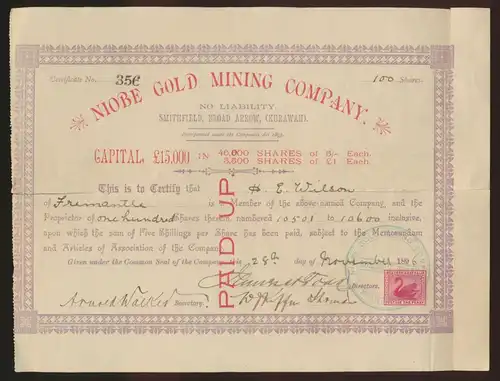 Certificate No. 356
100 Shares
NIOBE GOLD MINING COMPANY.
NO LIABILITY.
SMITHFIELD, BROAD ARROW, (KURAWAH).
Incorporated under the Companies Act 1893.
CAPITAL, £15,000 IN 46,000 SHARES OF 5/- Each.
3,500 SHARES OF £1 Each.
This is to Certify that H. E. Wilson
of Fremantle is a Member of the above named Company, and the
Proprietor of One hundred Shares therein numbered 10501 to 10600 inclusive,
upon which the sum of Five Shillings per Share has been paid, subject to the Memorandum
and Articles of Association of the Company.
Given under the Common Seal of the Company this 28th day of November 1896
PAID UP
Arnold Walker Secretary.
Directors.